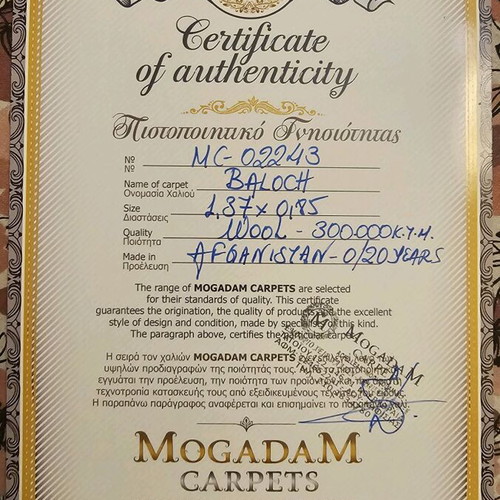 Certificate
of authenticity
Πιστοποιητικό Γνησιότητας
Nº MC-02243
Nº
Name of carpet BALOCH
Ονομασία Χαλιού
Size 1,37 x 0,85
Διαστάσεις
Quality WOOL - 300.000 K.T.M.
Ποιότητα
Made in AFGANISTAN - 0/20 YEARS
Προέλευση
The range of MOGADAM CARPETS are selected
for their standards of quality. This certificate
guarantees the origination, the quality of products and the excellent
style of design and condition, made by specialists of this kind.
The paragraph above, certifies the particular carpet.
Η σειρά των χαλιών MOGADAM CARPETS
υψηλών προδιαγραφών της ποιότητάς τους. Αυτό το πιστοποιητικό
εγγυάται την προέλευση, την ποιότητα των προϊόντων και την
τεχνοτροπία κατασκευής τους από εξειδικευμένους τεχνίτες του είδους.
Η παραπάνω παράγραφος αναφέρεται και επισημαίνει το
MOGADAM
MOGADAM
CARPETS